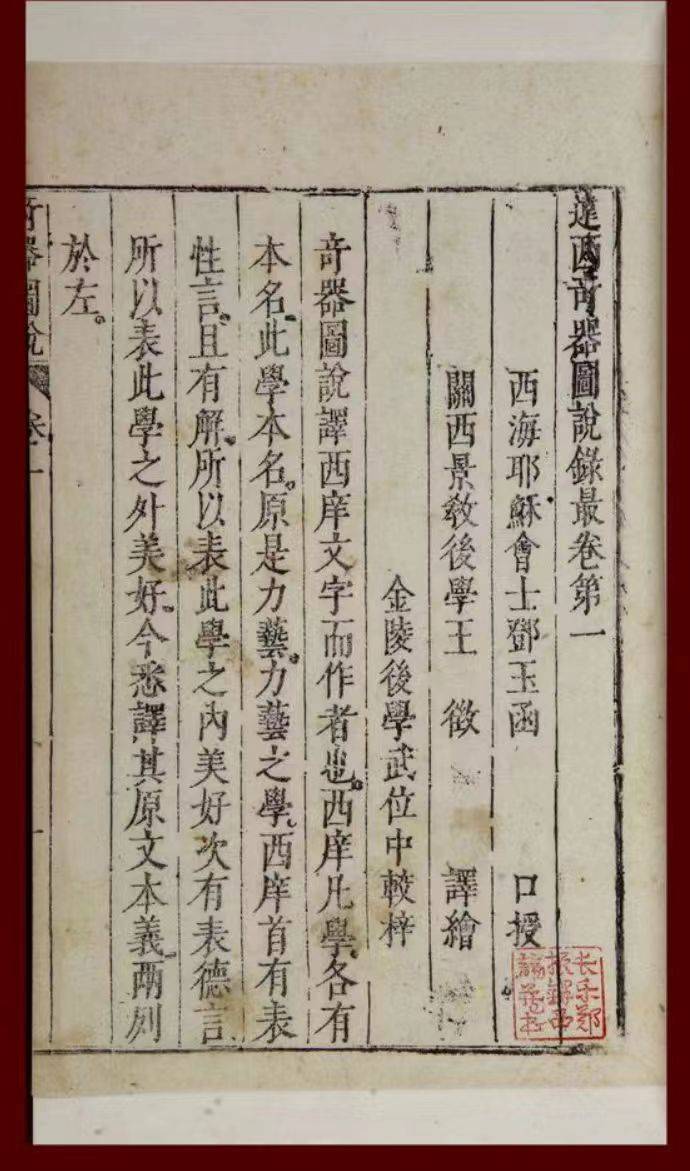 遠西奇器圖說錄最卷第一
西海耶穌會士鄧玉函　口授
關西景教後學王　徵　譯繪
金陵後學武位中較梓
奇器圖說譯西庠文字而作者也西庠凡學各有
本名此學本名原是力藝力藝之學西庠首有表
性言且有解所以表此學之內美好次有表德言
所以表此學之外美好今悉譯其原文本義兩列
於左
奇器圖說　卷一
一
长乐郑
振铎西
諦藏书